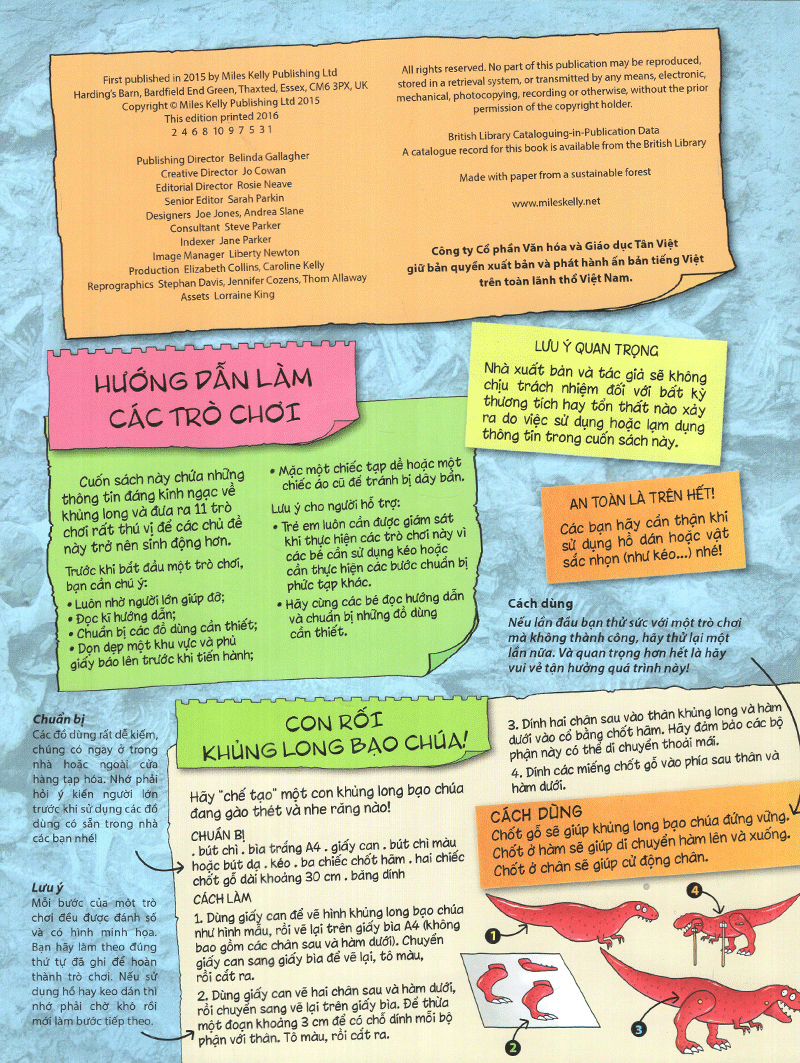 First published in 2015 by Miles Kelly Publishing Ltd
Harding's Barn, Bardfield End Green, Thaxted, Essex, CM6 3PX, UK
Copyright © Miles Kelly Publishing Ltd 2015
This edition printed 2016
2 4 6 8 10 9 7 5 3 1
Publishing Director Belinda Gallagher
Creative Director Jo Cowan
Editorial Director Rosie Neave
Senior Editor Sarah Parkin
Designers Joe Jones, Andrea Slane
Consultant Steve Parker
Indexer Jane Parker
Image Manager Liberty Newton
Production Elizabeth Collins, Caroline Kelly
Reprographics Stephan Davis, Jennifer Cozens, Thom Allaway
Assets Lorraine King
All rights reserved. No part of this publication may be reproduced,
stored in a retrieval system, or transmitted by any means, electronic,
mechanical, photocopying, recording or otherwise, without the prior
permission of the copyright holder.
British Library Cataloguing-in-Publication Data
A catalogue record for this book is available from the British Library
Made with paper from a sustainable forest
www.mileskelly.net
Công ty Cổ phần Văn hóa và Giáo dục Tân Việt
giữ bản quyền xuất bản và phát hành ấn bản tiếng Việt
trên toàn lãnh thổ Việt Nam.
LƯU Ý QUAN TRỌNG
Nhà xuất bản và tác giả sẽ không
chịu trách nhiệm đối với bất kỳ
thương tích hay tổn thất nào xảy
ra do việc sử dụng hoặc lạm dụng
thông tin trong cuốn sách này.
HƯỚNG DẪN LÀM
CÁC TRÒ CHƠI
Cuốn sách này chứa những
thông tin đáng kinh ngạc về
khủng long và đưa ra 11 trò
chơi rất thú vị để các chủ đề
này trở nên sinh động hơn.
Trước khi bắt đầu một trò chơi,
bạn cần chú ý:
• Luôn nhờ người lớn giúp đỡ;
• Đọc kĩ hướng dẫn;
• Chuẩn bị các đồ dùng cần thiết;
• Dọn dẹp một khu vực và phủ
giấy báo lên trước khi tiến hành;
• Mặc một chiếc tạp dề hoặc một
chiếc áo cũ để tránh bị dây bẩn.
Lưu ý cho người hỗ trợ:
• Trẻ em luôn cần được giám sát
khi thực hiện các trò chơi này vì
các bé cần sử dụng kéo hoặc
cần thực hiện các bước chuẩn bị
phức tạp khác.
• Hãy cùng các bé đọc hướng dẫn
và chuẩn bị những đồ dùng
cần thiết.
AN TOÀN LÀ TRÊN HẾT!
Các bạn hãy cẩn thận khi
sử dụng hồ dán hoặc vật
sắc nhọn (như kéo...) nhé!
Cách dùng
Nếu lần đầu bạn thử sức với một trò chơi
mà không thành công, hãy thử lại một
lần nữa. Và quan trọng hơn hết là hãy
vui vẻ tận hưởng quá trình này!
Chuẩn bị
Các đồ dùng rất dễ kiếm,
chúng có ngay ở trong
nhà hoặc ngoài cửa
hàng tạp hóa. Nhớ phải
hỏi ý kiến người lớn
trước khi sử dụng các đồ
dùng có sẵn trong nhà
các bạn nhé!
Lưu ý
Mỗi bước của một trò
chơi đều được đánh số
và có hình minh họa.
Bạn hãy làm theo đúng
thứ tự đã ghi để hoàn
thành trò chơi. Nếu sử
dụng hồ hay keo dán thì
nhớ phải chờ khô rồi
mới làm bước tiếp theo.
CON RỐI
KHỦNG LONG BẠO CHÚA!
Hãy "chế tạo" một con khủng long bạo chúa
đang gào thét và nhe răng nào!
CHUẨN BỊ
. bút chì . bìa trắng A4 . giấy can . bút chì màu
hoặc bút dạ . kéo . ba chiếc chốt hãm . hai chiếc
chốt gỗ dài khoảng 30 cm . băng dính
CÁCH LÀM
1. Dùng giấy can để vẽ hình khủng long bạo chúa
như hình mẫu, rồi vẽ lại trên giấy bìa A4 (không
bao gồm các chân sau và hàm dưới). Chuyển
giấy can sang giấy bìa để vẽ lại, tô màu,
rồi cắt ra.
2. Dùng giấy can vẽ hai chân sau và hàm dưới,
rồi chuyển sang vẽ lại trên giấy bìa. Để thừa
một đoạn khoảng 3 cm để có chỗ dính mỗi bộ
phận với thân. Tô màu, rồi cắt ra.
3. Dính hai chân sau vào thân khủng long và hàm
dưới vào cổ bằng chốt hãm. Hãy đảm bảo các bộ
phận này có thể di chuyển thoải mái.
4. Dính các miếng chốt gỗ vào phía sau thân và
hàm dưới.
CÁCH DÙNG
Chốt gỗ sẽ giúp khủng long bạo chúa đứng vững.
Chốt ở hàm sẽ giúp di chuyển hàm lên và xuống.
Chốt ở chân sẽ giúp cử động chân.
1
4
2
3